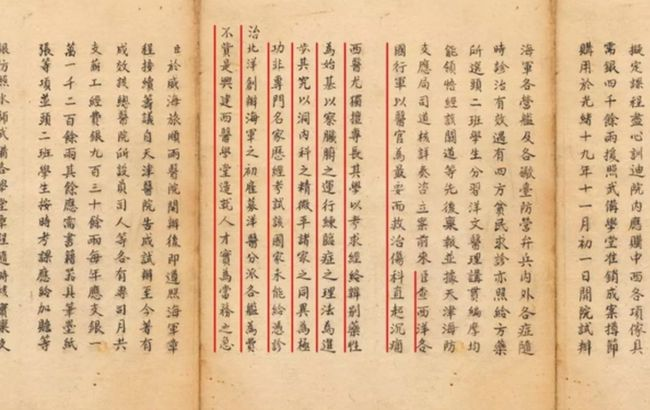 擬定課程盡心訓迪院內應購中西各項傢具
需銀四千餘兩援照武備學堂准銷成案撙節
購用於光緒十九年十一月初一日開院試辦
海軍各營艦及各礮臺防營弁兵內外各症隨
時診治有效遇有四方貧民求診亦照給方藥
所選頭二班學生分習洋文醫理講貫編摩均
能領悟經該關道等先後稟報並據天津海防
支應局司道核詳奏咨立案前來臣查西洋各
國行軍以醫官為最要而救治傷科直起沉痼
西醫尤獨擅專長其學以考求經絡辨別藥性
為始基以察臟腑之運行練臨症之理法為進
步其究以洞內科之精微平諸家之同異為極
功非專門名家歷經考試該國家未能給憑診
治北洋創辦海軍之初雇募洋醫分派各艦為費
不貲是興建西醫學堂造就人才實為當務之急
臣於威海旅順兩醫院開辦後即遵照海軍章
程接續籌議自天津醫院告成試辦至今著有
成效該總醫院所設員司人等各有專司月共
支薪工經費銀九百三十餘兩每年應支銀一
萬一千二百餘兩其餘應需書籍器具筆墨紙
張等項並頭二班學生按時考課應給加贍等